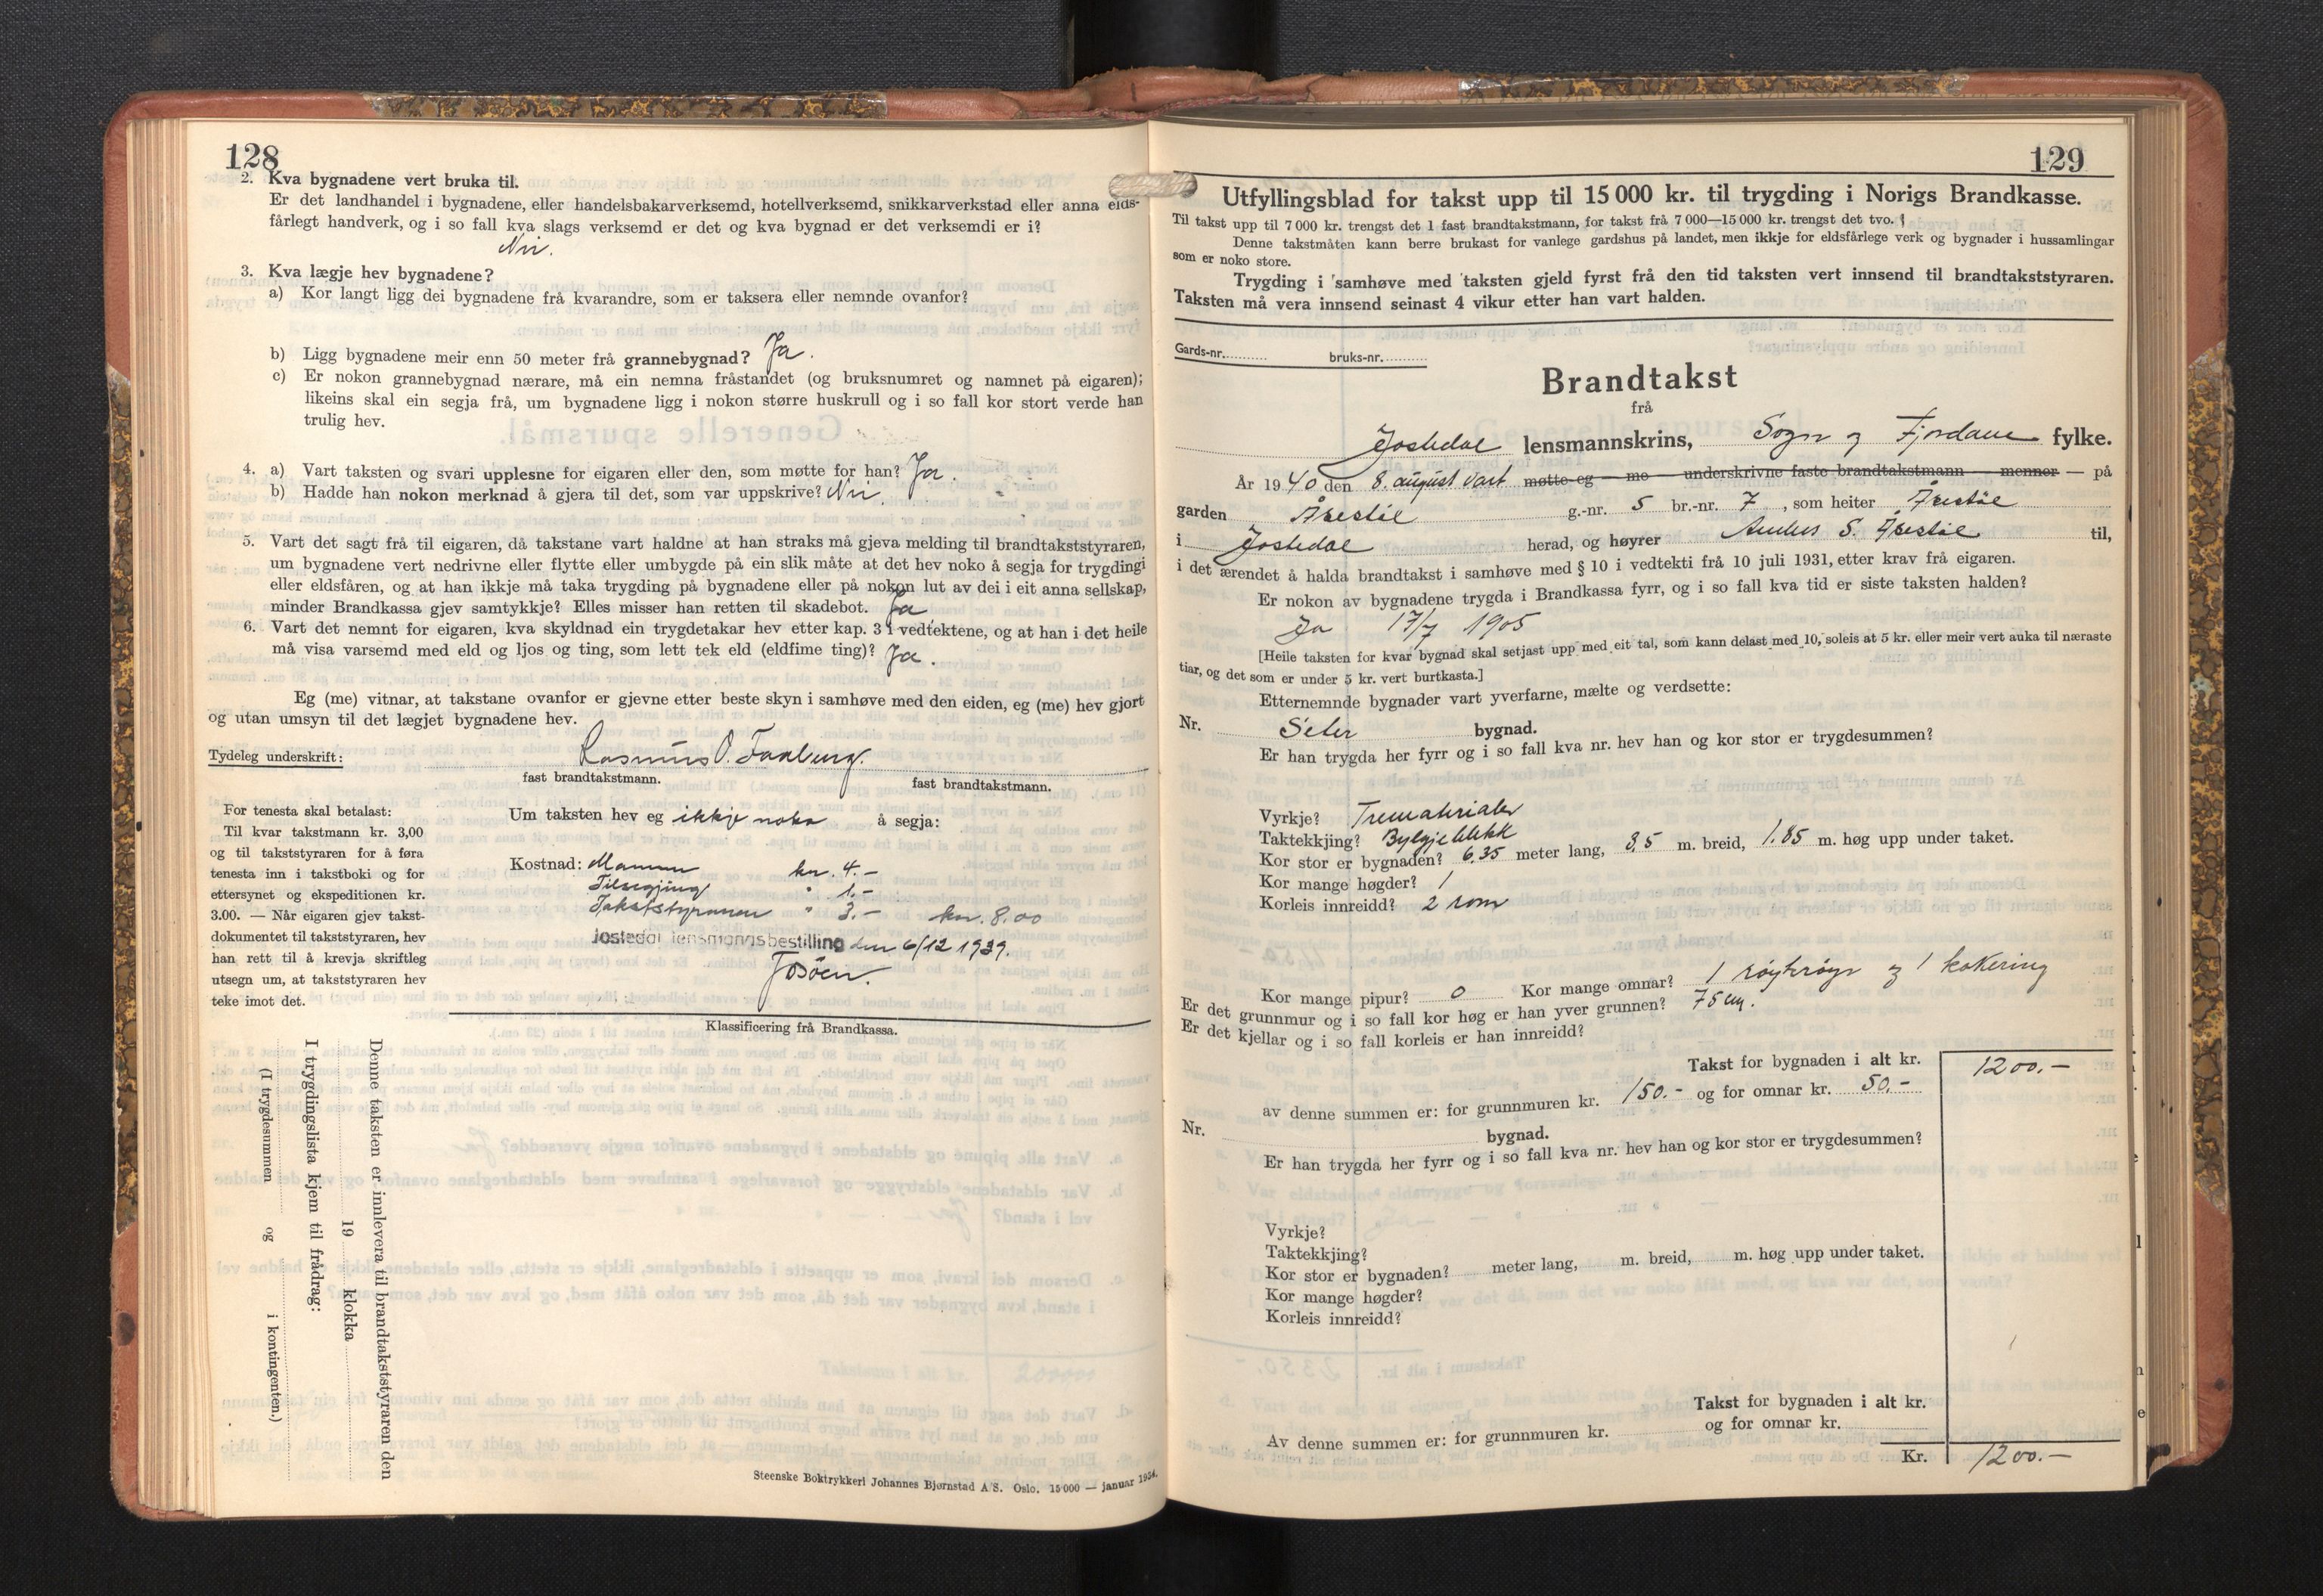 128
2. Kva bygnadene vert bruka til.
Er det landhandel i bygnadene, eller handelsbakarverksemd, hotellverksemd, snikkarverkstad eller anna elds-
fårlegt handverk, og i so fall kva slags verksemd er det og kva bygnad er det verksemdi er i?
Nei.
3. Kva lægje hev bygnadene?
a) Kor langt ligg dei bygnadene frå kvarandre, som er taksera eller nemnde ovanfor?
b) Ligg bygnadene meir enn 50 meter frå grannebygnad? Ja.
c) Er nokon grannebygnad nærare, må ein nemna fråstandet (og bruksnumret og namnet på eigaren);
likeins skal ein segja frå, um bygnadene ligg i nokon større huskrull og i so fall kor stort verde han
trulig hev.
4. a) Vart taksten og svari upplesne for eigaren eller den, som møtte for han? Ja.
b) Hadde han nokon merknad å gjera til det, som var uppskrive? Nei.
5. Vart det sagt frå til eigaren, då takstane vart haldne at han straks må gjeva melding til brandtakststyraren,
um bygnadene vert nedrivne eller flytte eller umbygde på ein slik måte at det hev noko å segja for trygdingi
eller eldsfåren, og at han ikkje må taka trygding på bygnadene eller på nokon lut av dei i eit anna sellskap,
minder Brandkassa gjev samtykkje? Elles misser han retten til skadebot. Ja
6. Vart det nemnt for eigaren, kva skyldnad ein trygdetakar hev etter kap. 3 i vedtektene, og at han i det heile
må visa varsemd med eld og ljos og ting, som lett tek eld (eldfime ting)? Ja.
Eg (me) vitnar, at takstane ovanfor er gjevne etter beste skyn i samhøve med den eiden, eg (me) hev gjort
og utan umsyn til det lægjet bygnadene hev.
Tydeleg underskrift: Rasmus O. Faaberg.
fast brandtakstmann. fast brandtakstmann.
For tenesta skal betalast:
Til kvar takstmann kr. 3,00
og til takststyraren for å føra
tenesta inn i takstboki og for
ettersynet og ekspeditionen kr.
3.00. — Når eigaren gjev takst-
dokumentet til takststyraren, hev
han rett til å krevja skriftleg
utsegn um, at takststyraren hev
teke imot det.
Um taksten hev eg ikkje noko å segja:
Kostnad: Mannen kr. 4.-
Tilsegjing " 1.-
Takststyraren " 3.- kr. 8.00
Jostedal lensmannsbestilling den 6/12 1939.
Klassificering frå Brandkassa.
Denne taksten er innlevera til brandtakststyraren den
19 klokka
I trygdingslista kjem til frådrag:
(I trygdesummen og i kontingenten.)
Steenske Boktrykkeri Johannes Bjørnstad A/S. Oslo. 15 000 — januar 1934.
129
Utfyllingsblad for takst upp til 15 000 kr. til trygding i Norigs Brandkasse.
Til takst upp til 7 000 kr. trengst det 1 fast brandtakstmann, for takst frå 7 000—15 000 kr. trengst det tvo.
Denne takstmåten kann berre brukast for vanlege gardshus på landet, men ikkje for eldsfårlege verk og bygnader i hussamlingar
som er noko store.
Trygding i samhøve med taksten gjeld fyrst frå den tid taksten vert innsend til brandtakststyraren.
Taksten må vera innsend seinast 4 vikur etter han vart halden.
Gards-nr. bruks-nr.
Brandtakst
frå
Jostedal lensmannskrins, Sogn og Fjordane fylke.
År 1940 den 8. august vart møtte eg — me — underskrivne faste brandtakstmann — menner — på
garden Åsestøl g.-nr. 5 br.-nr. 7, som heiter Åsestøl
i Jostedal herad, og høyrer Anders S. Åsestøl til,
i det ærendet å halda brandtakst i samhøve med § 10 i vedtekti frå 10 juli 1931, etter krav frå eigaren.
Er nokon av bygnadene trygda i Brandkassa fyrr, og i so fall kva tid er siste taksten halden?
Ja 17/7 1905
[Heile taksten for kvar bygnad skal setjast upp med eit tal, som kann delast med 10, soleis at 5 kr. eller meir vert auka til næraste
tiar, og det som er under 5 kr. vert burtkasta.]
Etternemnde bygnader vart yverfarne, mælte og verdsette:
Nr. Seter bygnad.
Er han trygda her fyrr og i so fall kva nr. hev han og kor stor er trygdesummen?
Vyrkje? Trematerialer
Taktekkjing? Bylgjeblekk
Kor stor er bygnaden? 6,35 meter lang, 3,5 m. breid, 1.85 m. høg upp under taket.
Kor mange høgder? 1
Korleis innreidd? 2 rom
Kor mange pipur? 0 Kor mange omnar? 1 røykrøyr og 1 kokering
Er det grunnmur og i so fall kor høg er han yver grunnen? 75 cm.
Er det kjellar og i so fall korleis er han innreidd?
Takst for bygnaden i alt kr. 1200.-
av denne summen er: for grunnmuren kr. 150.- og for omnar kr. 50.-
Nr. bygnad.
Er han trygda her fyrr og i so fall kva nr. hev han og kor stor er trygdesummen?
Vyrkje?
Taktekkjing?
Kor stor er bygnaden? meter lang, m. breid, m. høg upp under taket.
Kor mange høgder?
Korleis innreidd?
Takst for bygnaden i alt kr.
Av denne summen er: for grunnmuren kr. og for omnar kr.
Kr. 1200.-